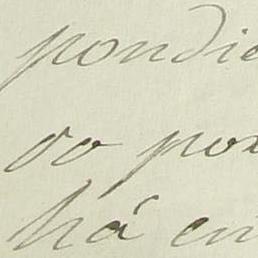 pondie
oo por
há en